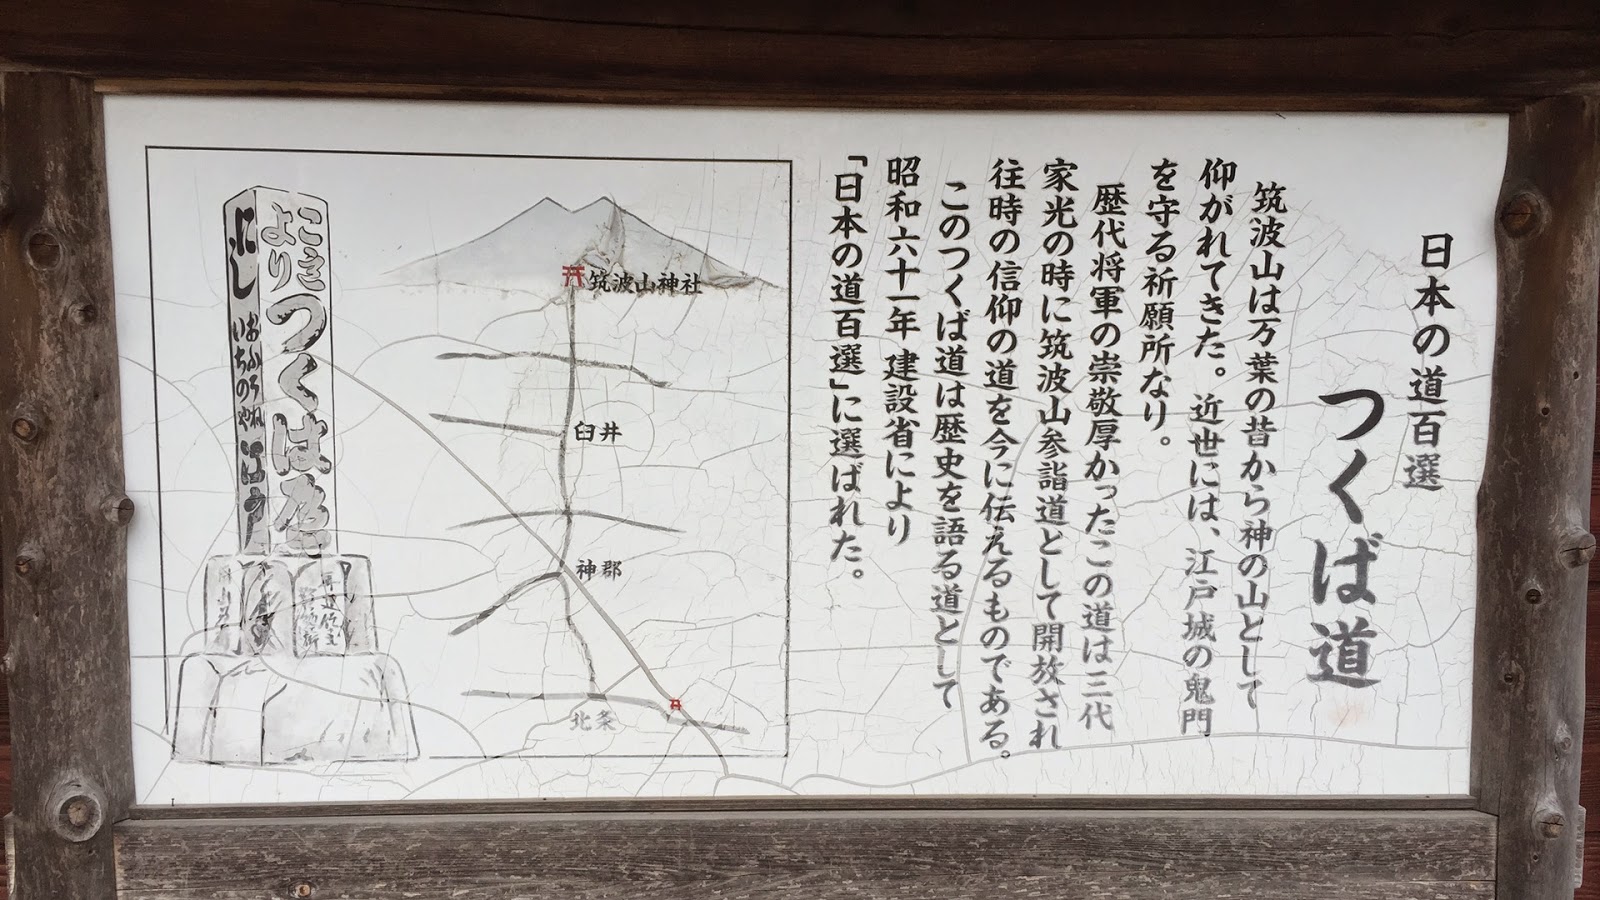 日本の道百選
つくば道
筑波山は万葉の昔から神の山として
仰がれてきた。近世には、江戸城の鬼門
を守る祈願所なり。
歴代将軍の崇敬厚かったこの道は三代
家光の時に筑波山参詣道として開放され
往時の信仰の道を今に伝えるものである。
このつくば道は歴史を語る道として
昭和六十一年建設省により
「日本の道百選」に選ばれた。
筑波山神社
臼井
神郡
北条
これより
つくば道
にし